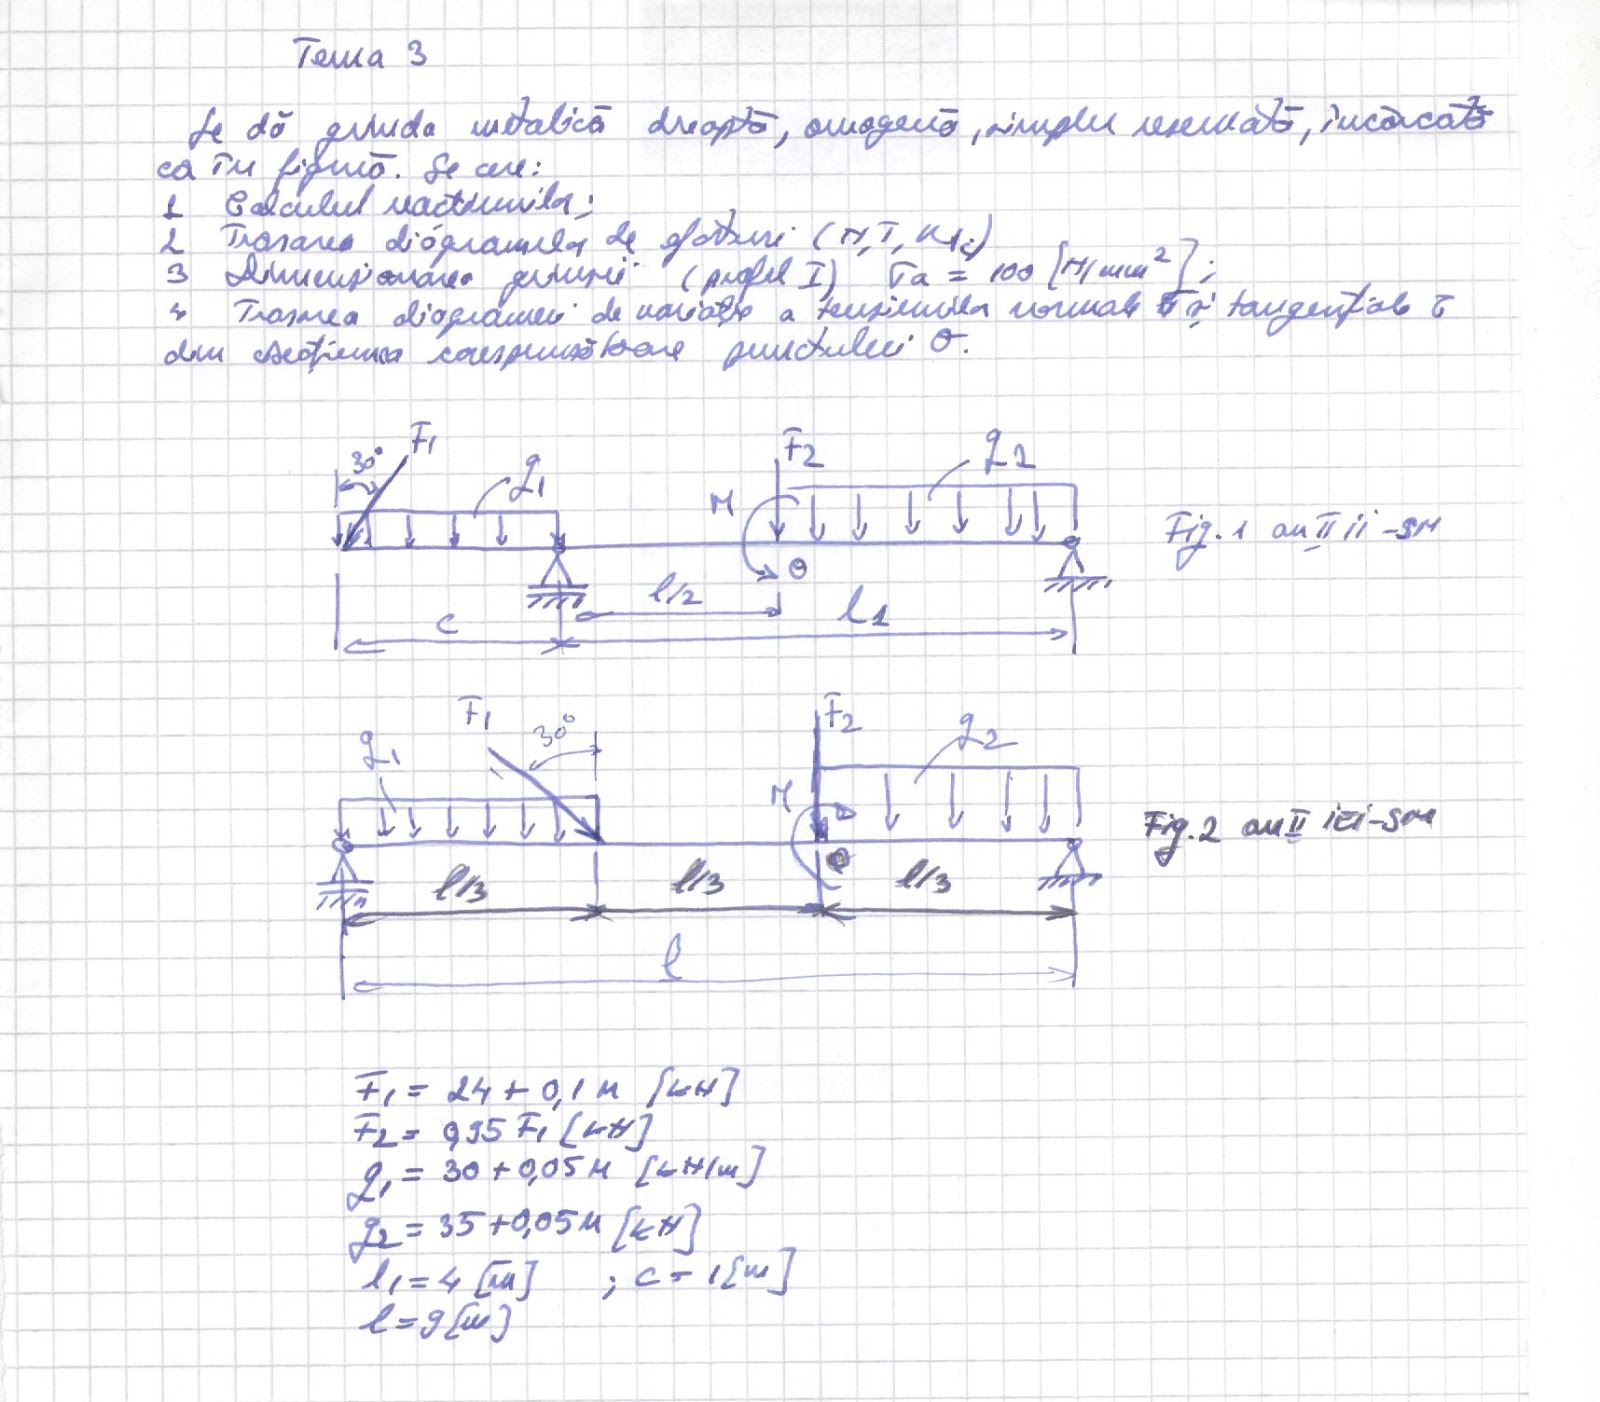 Tema 3
Se dă grinda metalică dreaptă, omogenă, simplu rezemată, încărcată
ca în figură. Se cere:
1 Calculul reacțiunilor;
2 Trasarea diagramelor de eforturi (N, T, Mi)
3 Dimensionarea grinzii (profil I) σa = 100 [N/mm²];
4 Trasarea diagramei de variație a tensiunilor normale σ și tangențiale τ
din secțiunea corespunzătoare punctului O.
30° F1 q1 M F2 q2
O
l/2 l1
c
Fig. 1 an II ii - SM
q1 F1 30° M F2 q2
O
l/3 l/3 l/3
l
Fig. 2 an II iei - SM
F1 = 24 + 0,1 n [kN]
F2 = 0,95 F1 [kN]
q1 = 30 + 0,05 n [kN/m]
q2 = 35 + 0,05 n [kN]
l1 = 4 [m] ; c = 1 [m]
l = 9 [m]